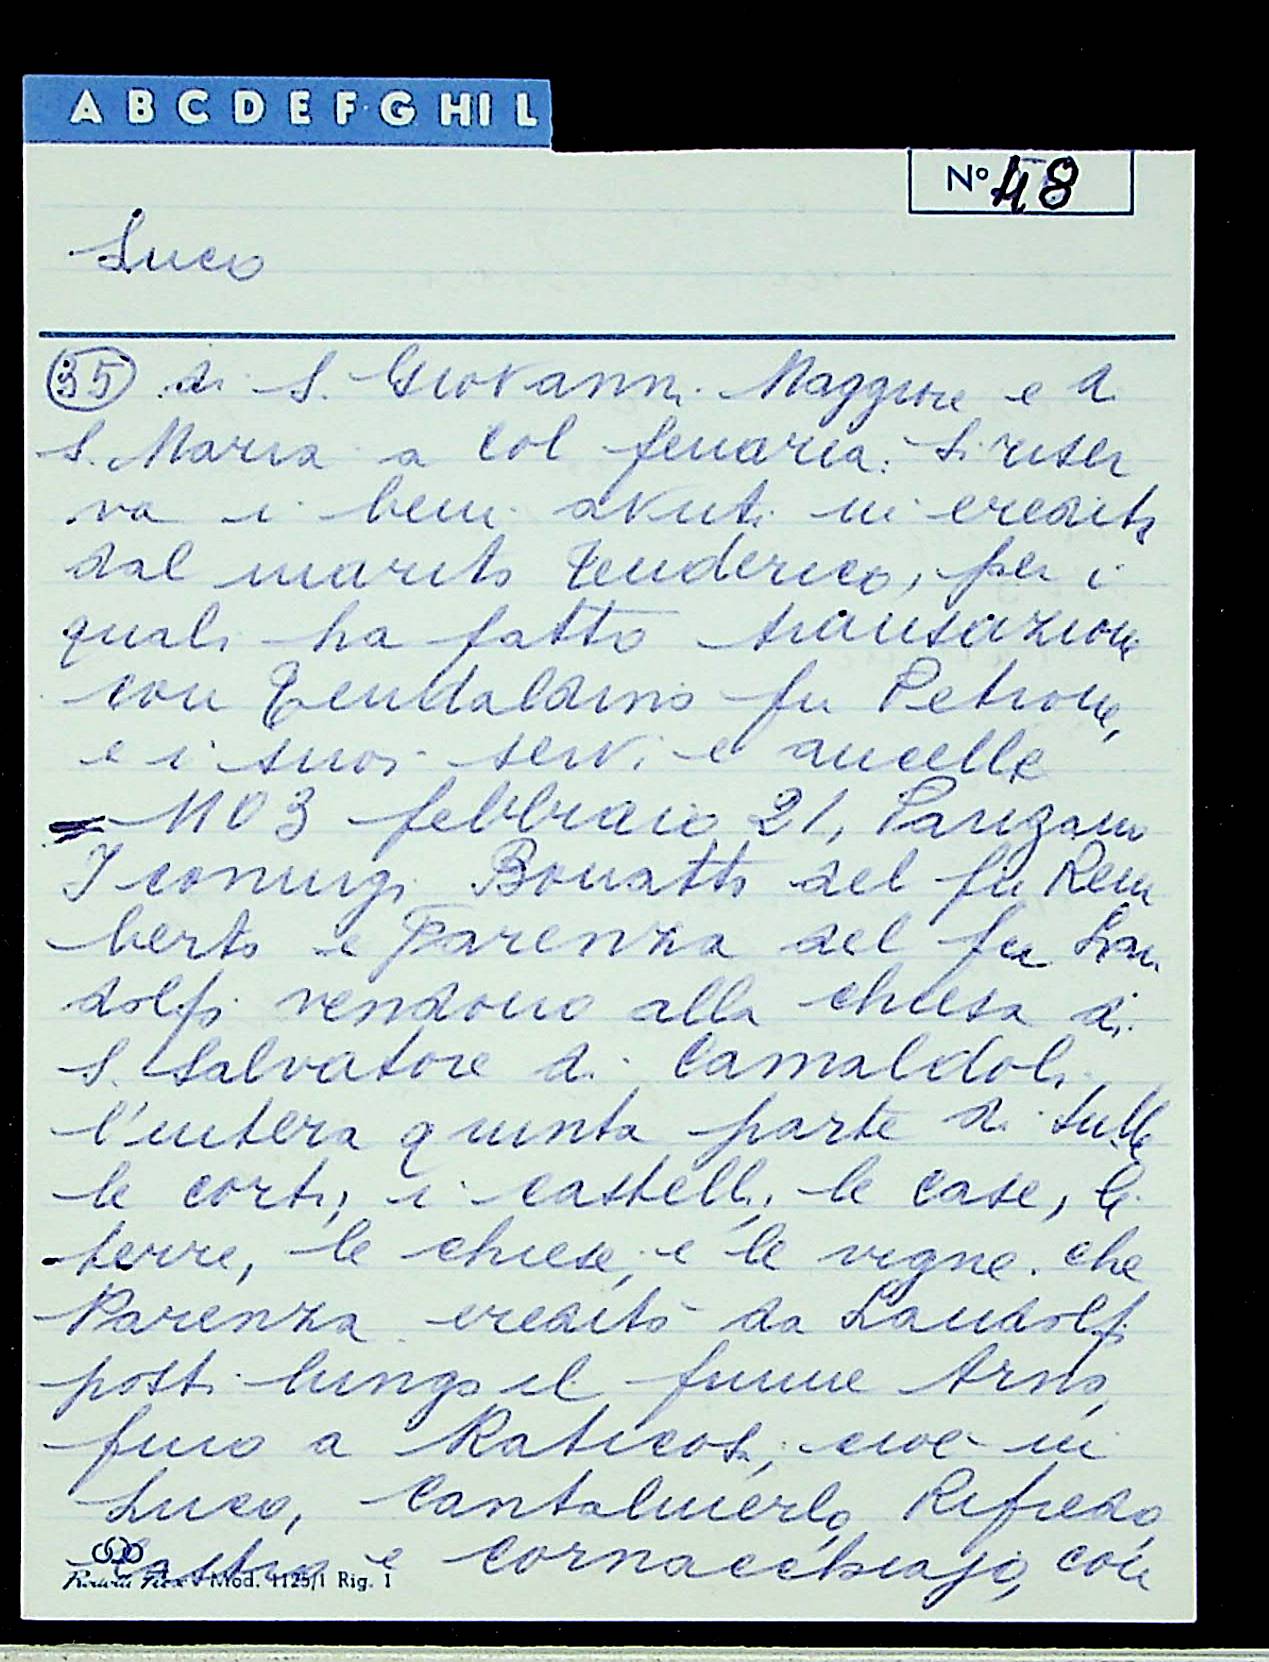 A B C D E F G HI L
N° 48
Luco
35 di S. Giovanni Maggiore e di
S. Maria a Col fenaria. Si riser
va i beni avuti in eredità
dal marito Teuderico, per i
quali ha fatto transazione
con Teudaldino fu Petrone,
e i suoi servi e ancelle
- 1103 febbraio 21, Panzano
I coniugi Bonatto del fu Rem
berto e Parenza del fu Lan
dolfo vendono alla chiesa di
S. Salvatore di Camaldoli,
l'intera quinta parte di tutte
le corti, i castelli, le case, le
terre, le chiese, e le vigne che
Parenza ereditò da Landolfo
posti lungo il fiume Arno,
fino a Raticosa, cioè in
Luco, Cantalmerlo, Rifredo,
Castro e Cornacchiajo, con
Mod. 1125/1 Rig. 1